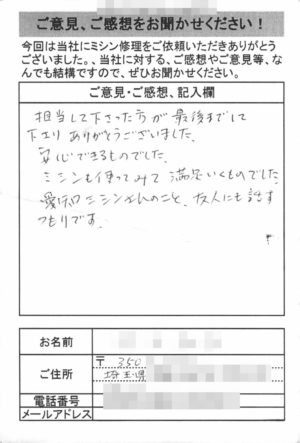 ご意見、ご感想をお聞かせください!
今回は当社にミシン修理をご依頼いただきありがとう
ございました。、当社に対する、ご感想やご意見等、な
んでも結構ですので、ぜひお聞かせください。
ご意見・ご感想、記入欄
担当して下さった方が最後までして
下さり ありがとうございました。
安心できるものでした。
ミシンも使ってみて 満足いくものでした。
愛知ミシンさんのこと、友人にも話す
つもりです。
お名前
ご住所
〒 350
埼玉県
電話番号
メールアドレス